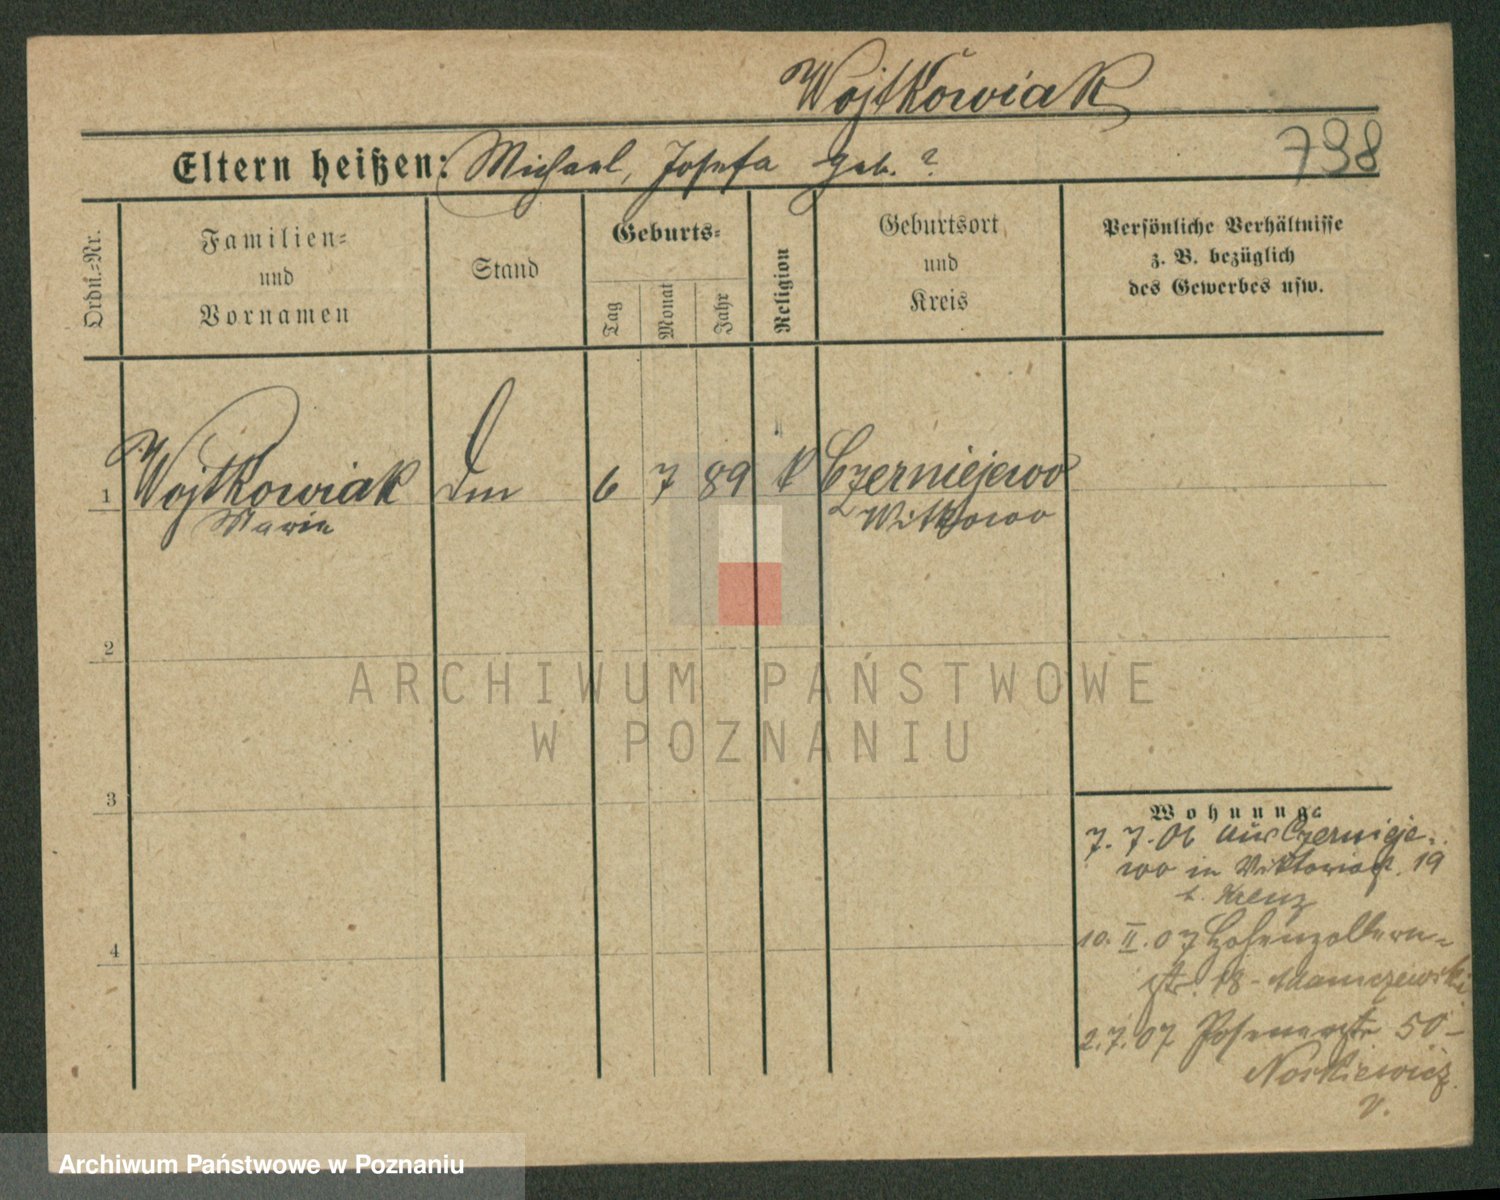 Wojtkowiak
798
Eltern heißen: Michael, Josefa geb. ?
Ordn.=Nr.
Familien=
und
Vornamen
Stand
Geburts=
Tag
Monat
Jahr
Religion
Geburtsort
und
Kreis
Persönliche Verhältnisse
z. B. bezüglich
des Gewerbes usw.
1 Wojtkowiak 6 7 89 k Czerniejewo
Marie Witkowo
2
ARCHIWUM PAŃSTWOWE
W POZNANIU
3
Wohnung
7. 7. 06 aus Czernieje-
wo in Viktoriast. 19
b. Krenz
4
10. II. 07 Hohenzollern-
str. 18 -
2.7.07 Posenerstr 50 -
v.
Archiwum Państwowe w Poznaniu